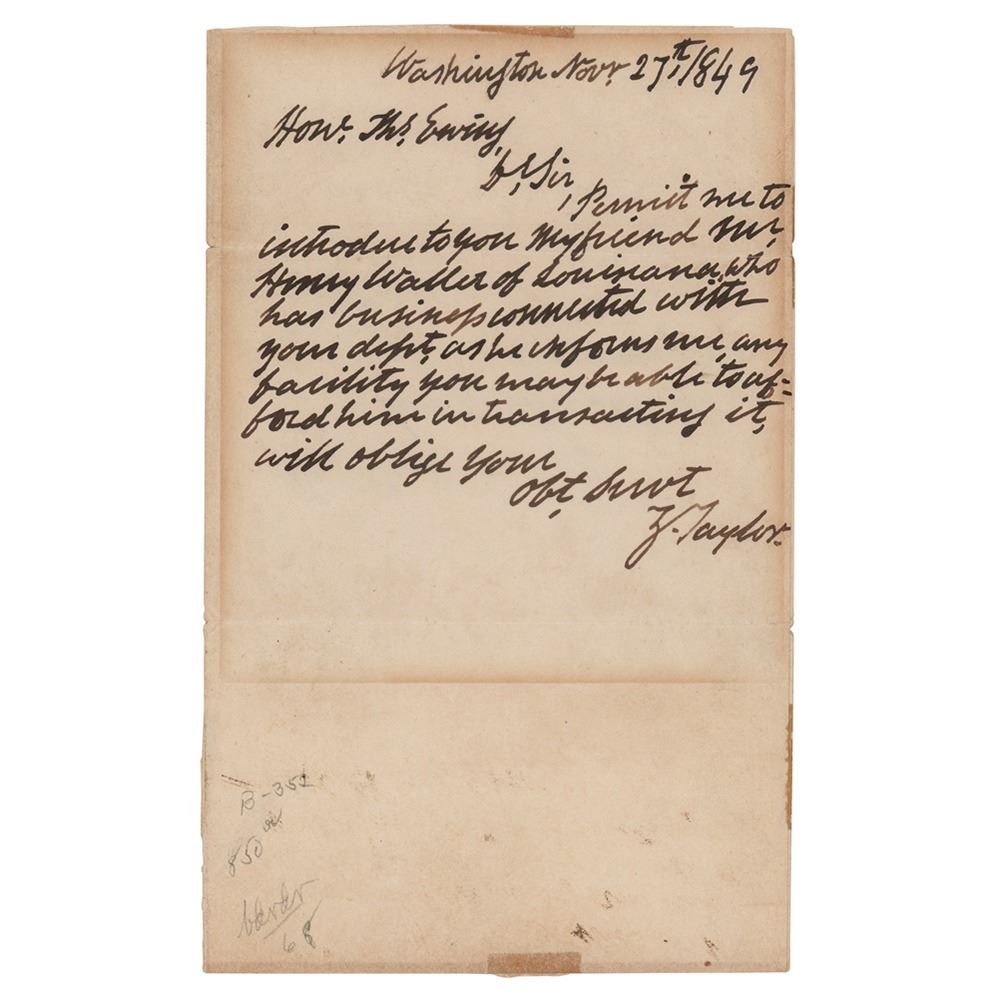 Washington Novr. 27th, 1849
Honr. Ths. Ewing,
Dr, Sir,
Permit me to
introduce to you my friend Mr,
Henry Waller of Louisiana, who
has business connected with
your dept, as he informs me, any
facility you may be able to af=
ford him in transacting it,
will oblige your
Obt, Servt
Z. Taylor.
B-352
850
68